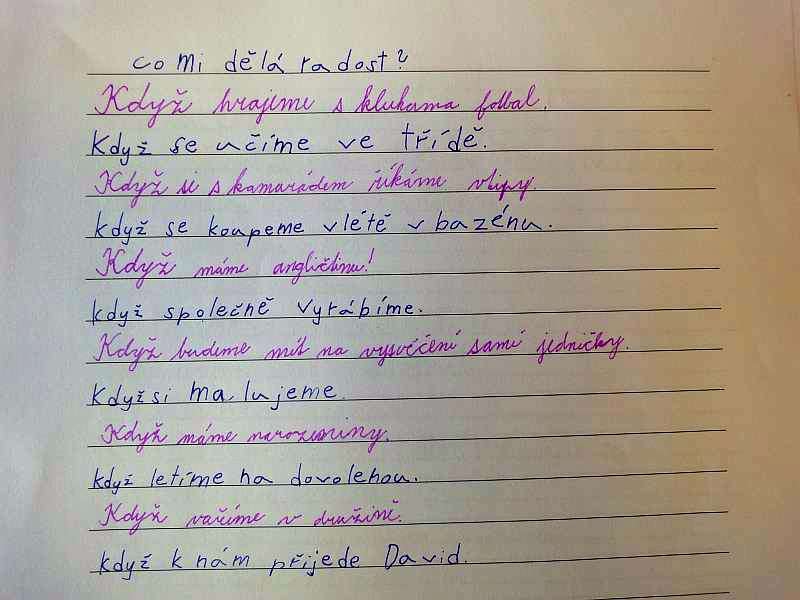 co mi dělá radost?
Když hrajeme s klukama fotbal.
Když se učíme ve třídě.
Když si s kamarádem říkáme vtipy.
když se koupeme v létě v bazénu.
Když máme angličtinu!
když společně vyrábíme.
Když budeme mít na vysvěčení samí jedničky.
Když si malujeme.
Když máme narozeniny.
když letíme na dovolenou.
Když vaříme v družině.
když k nám přijede David.